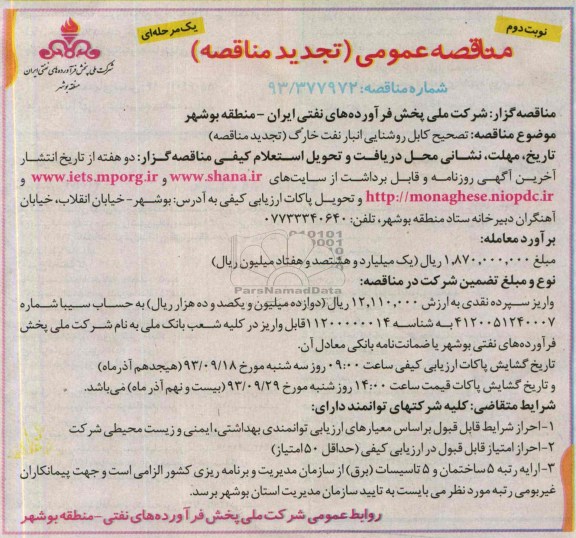 نوبت دوم
یک مرحله‌ای
مناقصه عمومی (تجدید مناقصه)
شرکت ملی پخش فرآورده‌های نفتی ایران
منطقه بوشهر
شماره مناقصه: ۹۳/۳۷۷۹۷۲
مناقصه‌گزار: شرکت ملی پخش فرآورده‌های نفتی ایران - منطقه بوشهر
موضوع مناقصه: تصحیح کابل روشنایی انبار نفت خارگ (تجدید مناقصه)
تاریخ، مهلت، نشانی محل دریافت و تحویل استعلام کیفی مناقصه‌گزار: دو هفته از تاریخ انتشار
آخرین آگهی روزنامه و قابل برداشت از سایت‌های www.shana.ir و www.iets.mporg.ir و
http://monaghese.niopdc.ir و تحویل پاکات ارزیابی کیفی به آدرس: بوشهر- خیابان انقلاب، خیابان
آهنگران دبیرخانه ستاد منطقه بوشهر، تلفن: ۰۷۷۳۳۳۴۰۶۴۰
برآورد معامله:
مبلغ ۱,۸۷۰,۰۰۰,۰۰۰ ریال (یک میلیارد و هشتصد و هفتاد میلیون ریال)
ParsNamadData
نوع و مبلغ تضمین شرکت در مناقصه:
واریز سپرده نقدی به ارزش ۱۲,۱۱۰,۰۰۰ ریال (دوازده میلیون و یکصد و ده هزار ریال) به حساب سیبا شماره
۴۱۲۰۰۵۱۲۴۰۰۰۷ به شناسه ۱۱۲۰۰۰۰۰۰۱۴ قابل واریز در کلیه شعب بانک ملی به نام شرکت ملی پخش
فرآورده‌های نفتی بوشهر یا ضمانت‌نامه بانکی معادل آن.
تاریخ گشایش پاکات ارزیابی کیفی ساعت ۰۹:۰۰ روز سه شنبه مورخ ۹۳/۰۹/۱۸ (هیجدهم آذرماه)
و تاریخ گشایش پاکات قیمت ساعت ۱۴:۰۰ روز شنبه مورخ ۹۳/۰۹/۲۹ (بیست و نهم آذر ماه) می‌باشد.
شرایط متقاضی: کلیه شرکتهای توانمند دارای:
۱- احراز شرایط قابل قبول براساس معیارهای ارزیابی توانمندی بهداشتی، ایمنی و زیست محیطی شرکت
۲- احراز امتیاز قابل قبول در ارزیابی کیفی (حداقل ۵۰ امتیاز)
۳- ارایه رتبه ۵ ساختمان و ۵ تاسیسات (برق) از سازمان مدیریت و برنامه ریزی کشور الزامی است و جهت پیمانکاران
غیربومی رتبه مورد نظر می بایست به تایید سازمان مدیریت استان بوشهر برسد.
روابط عمومی شرکت ملی پخش فرآورده‌های نفتی - منطقه بوشهر